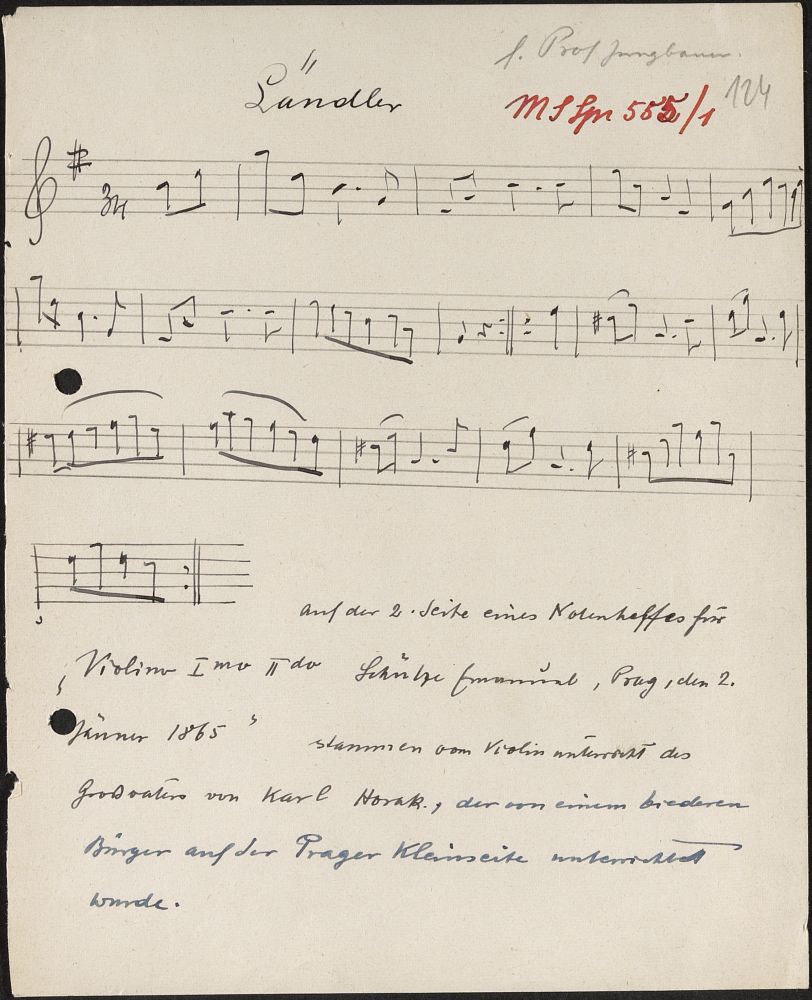 f. Prof Jungbauer.
124
Ländler
MS Spr 555/1
3/4
auf der 2. Seite eines Notenheftes für
„Violino Imo IIdo Schütze Emanuel, Prag, den 2.
Jänner 1865" stammen vom Violinunterricht des
Großvaters von Karl Horak., der von einem biederen
Bürger auf der Prager Kleinseite unterrichtet
wurde.